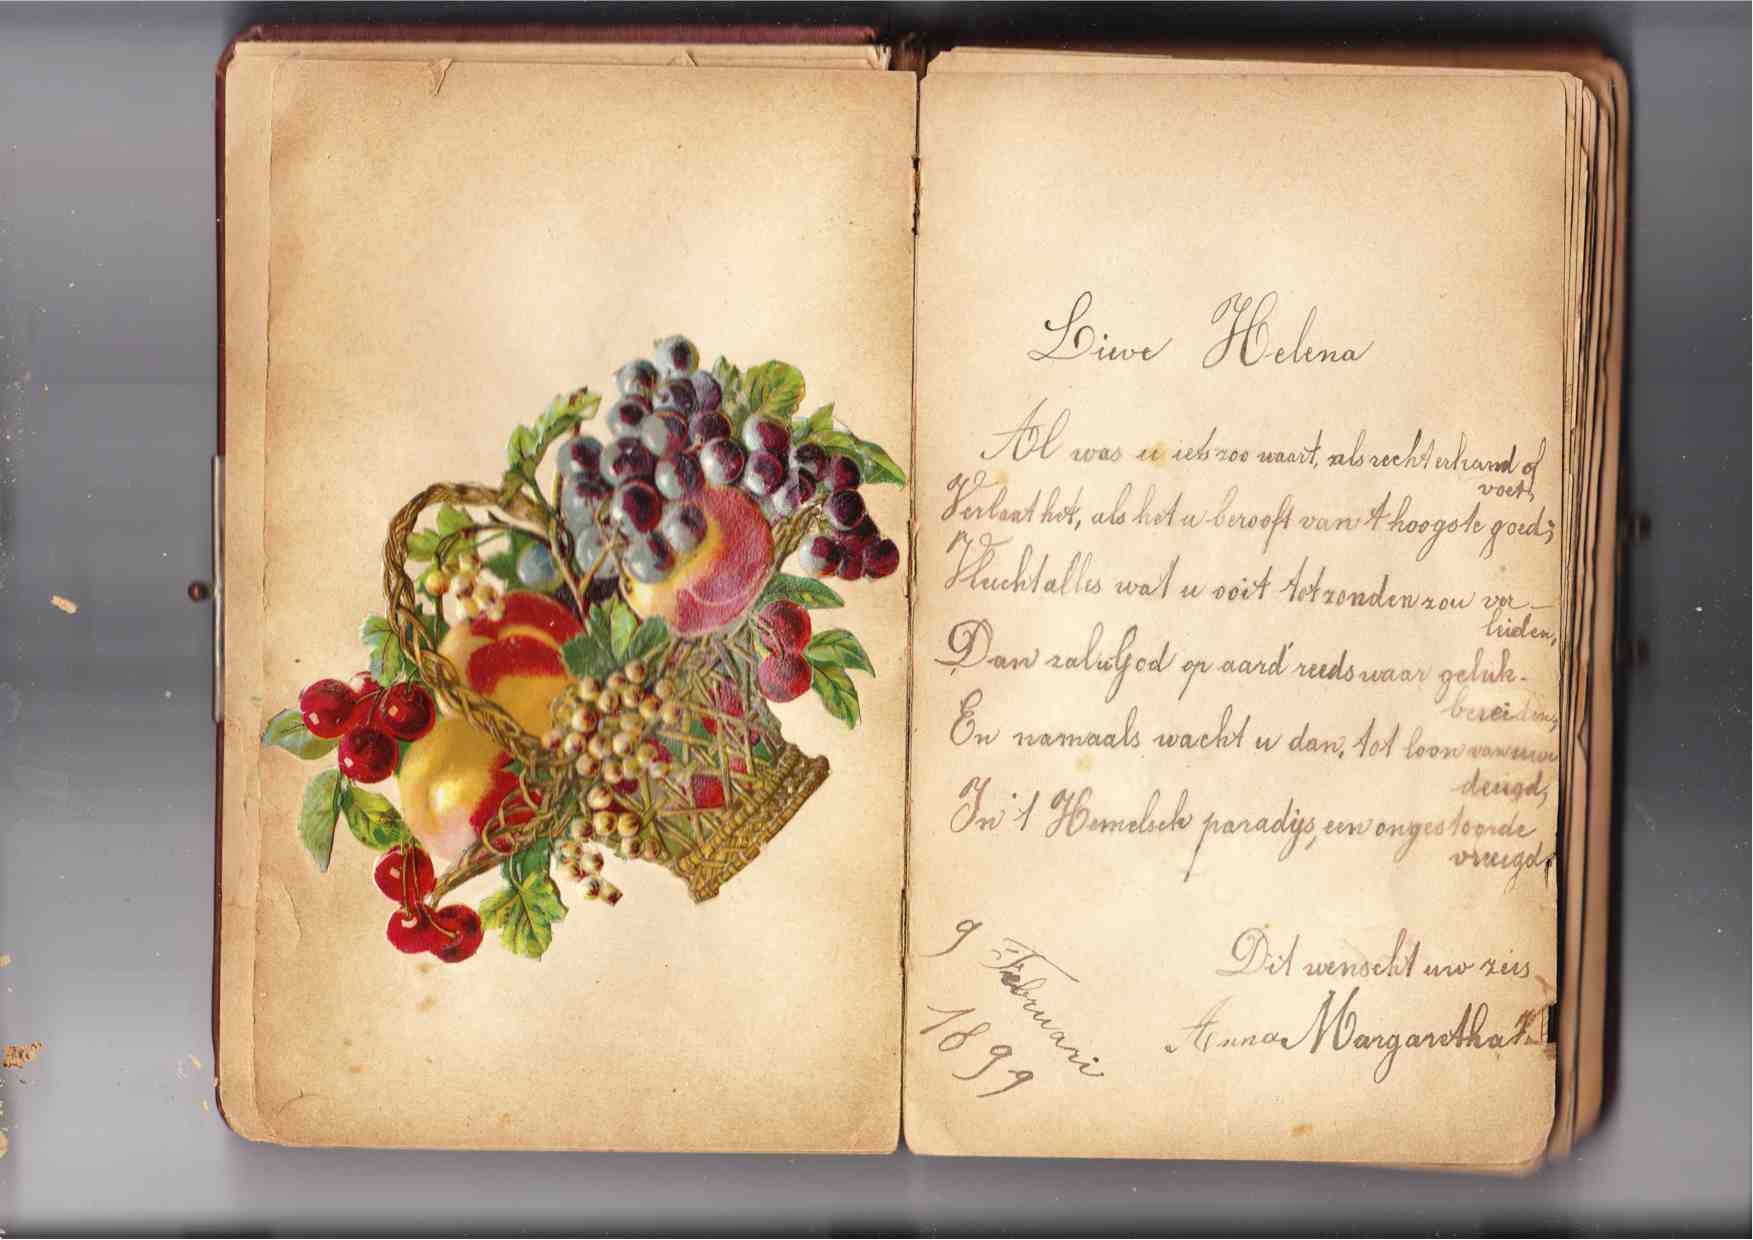 Liewe Helena
Al was u iets zoo waart, als rechterhand of
voet,
Verlaat het, als het u berooft van 't hoogste goed;
Vlucht alles wat u ooit tot zonden zou ver-
leiden,
Dan zal u God op aard' reeds waar geluk-
bereiden,
En namaals wacht u dan, tot loon van uw
deugd,
In 't Hemelsch paradijs, een ongestoorde
vreugd.
Dit wenscht uw zus
Anna Margaretha
9 Februari
1899